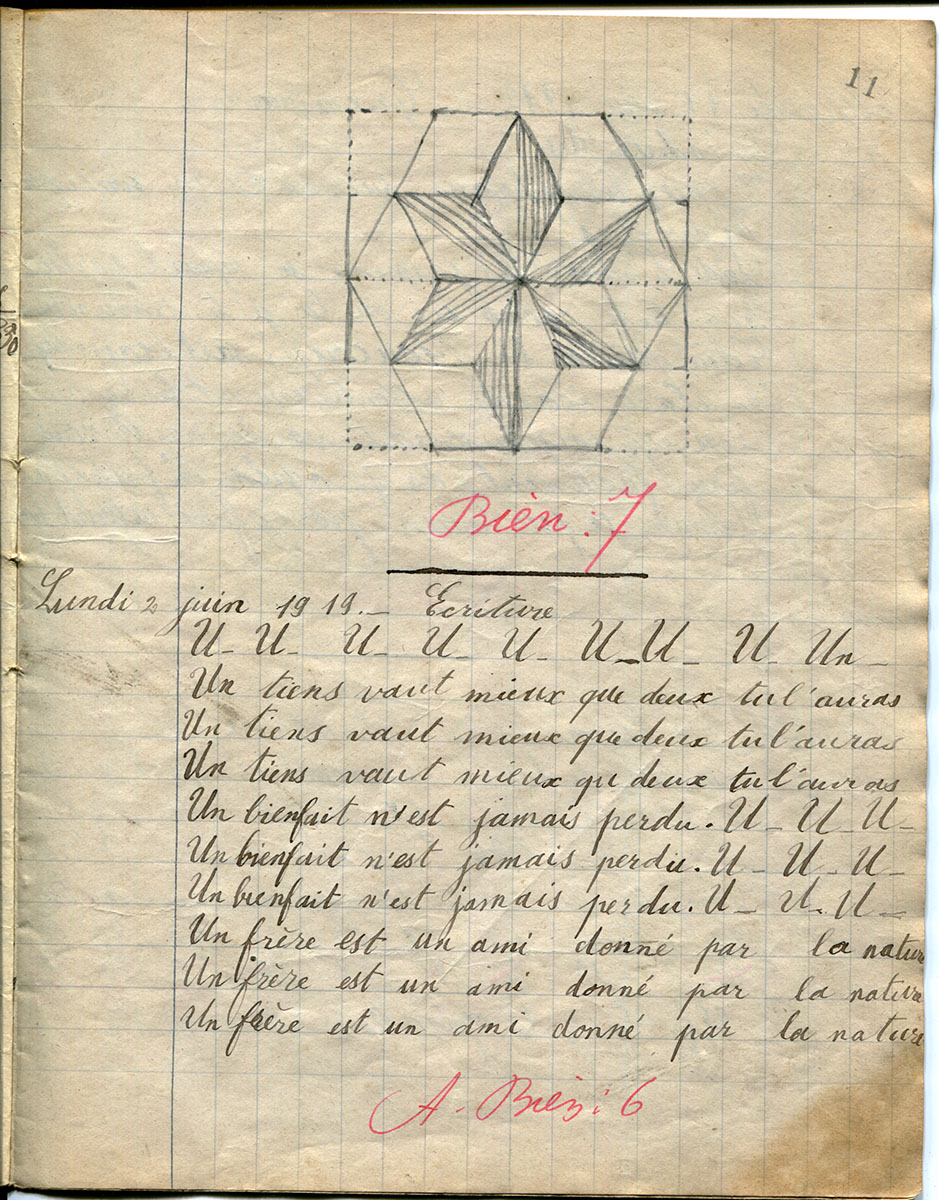 11
Bien : 7
Lundi 2 juin 1919._ Ecriture
U_ U_ U_ U_ U_ U_ U_ U_ Un_
Un tiens vaut mieux que deux tu l'auras
Un tiens vaut mieux que deux tu l'auras
Un tiens vaut mieux qu deux tu l'auras
Un bienfait n'est jamais perdu. U_ U_ U_
Un bienfait n'est jamais perdu. U_ U_ U_
Un bienfait n'est jamais perdu. U_ U_ U_
Un frère est un ami donné par la nature
Un frère est un ami donné par la nature
Un frère est un ami donné par la nature
A. Bien : 6